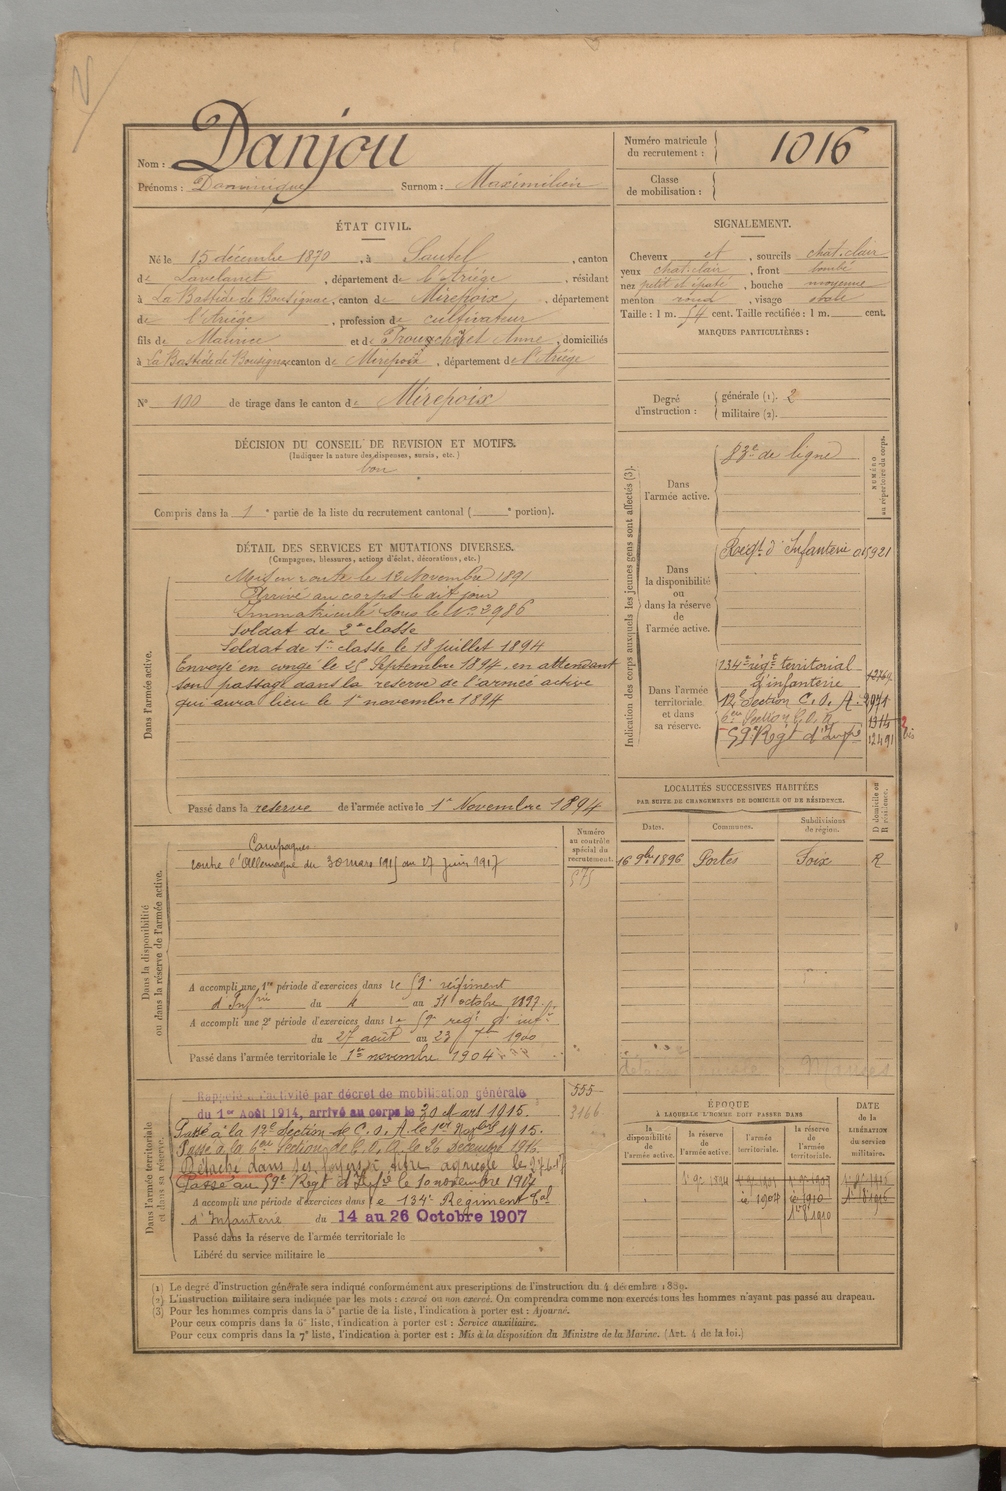 Nom : Danjou
Prénoms : Dominique Surnom : Maximilien
Numéro matricule du recrutement : 1016
Classe de mobilisation :
ÉTAT CIVIL.
Né le 15 décembre 1870, à Sautel, canton
de Lavelanet, département de l'Ariège, résidant
à La Bastide de Bousignac, canton de Mirepoix, département
de l'Ariège, profession de cultivateur
fils de Maurice et de Anne, domiciliés
à La Bastide de Bousignac canton de Mirepoix, département de l'Ariège
N° 100 de tirage dans le canton de Mirepoix
SIGNALEMENT.
Cheveux et, sourcils chat. clair
yeux chat. clair, front bombé
nez petit et épaté, bouche moyenne
menton rond, visage ovale
Taille : 1 m. 54 cent. Taille rectifiée : 1 m. cent.
MARQUES PARTICULIÈRES :
Degré d'instruction : générale (1). 2
militaire (2).
DÉCISION DU CONSEIL DE REVISION ET MOTIFS.
(Indiquer la nature des dispenses, sursis, etc.)
bon
Compris dans la 1e partie de la liste du recrutement cantonal ( e portion).
DÉTAIL DES SERVICES ET MUTATIONS DIVERSES.
(Campagnes, blessures, actions d'éclat, décorations, etc.)
Dans l'armée active.
Mis en route le 12 Novembre 1891
Arrivé au corps le dit jour
Immatriculé sous le N° 3986
Soldat de 2e classe
Soldat de 1re classe le 18 juillet 1894
Envoyé en congé le 25 Septembre 1894, en attendant
son passage dans la réserve de l'armée active
qui aura lieu le 1er novembre 1894
Passé dans la reserve de l'armée active le 1er Novembre 1894
Indication des corps auxquels les jeunes gens sont affectés (3).
NUMÉRO au répertoire du corps.
Dans l'armée active.
83e de ligne
Dans la disponibilité ou dans la réserve de l'armée active.
Regt d'Infanterie 015921
Dans l'armée territoriale et dans sa réserve.
134e régt territorial
d'infanterie
12e Section C. O. A. 2971
6e Section C. O. A. 1314
59e Regt d'Infie 12491
2 bis
LOCALITÉS SUCCESSIVES HABITÉES
PAR SUITE DE CHANGEMENTS DE DOMICILE OU DE RÉSIDENCE.
Dates. Communes. Subdivisions de région. D domicile ou R résidence.
16 9bre 1896 Portes Foix R
Dans la disponibilité ou dans la réserve de l'armée active.
Numéro au contrôle spécial du recrutement.
575
Campagnes
contre l'Allemagne du 30 mars 1915 au 27 juin 1917
A accompli une 1re période d'exercices dans le 59e régiment
d'Infrie du 4 au 31 octobre 1897.
A accompli une 2e période d'exercices dans le 59e regt d'infie
du 27 août au 23 7bre 1900
Passé dans l'armée territoriale le 1er novembre 1904
Dans l'armée territoriale et dans sa réserve.
555
2166
Rappelé à l'activité par décret de mobilisation générale
du 1er Août 1914, arrivé au corps le 30 Mars 1915.
Passé à la 12e Section de C. O. A. le 1er 1915.
Passé à la 6e Section de C. O. A. le 26 décembre 1915.
Détaché dans ses foyers à titre agricole le 27-6-17
Passé au 59e Regt d'Infie le 10 novembre 1917
A accompli une période d'exercices dans le 134e Régiment Tal
d'Infanterie du 14 au 26 Octobre 1907
Passé dans la réserve de l'armée territoriale le
Libéré du service militaire le
ÉPOQUE
À LAQUELLE L'HOMME DOIT PASSER DANS
DATE de la LIBÉRATION du service militaire.
la disponibilité de l'armée active.
la réserve de l'armée active.
l'armée territoriale.
la réserve de l'armée territoriale.
1er 9bre 1894
(1) Le degré d'instruction générale sera indiqué conformément aux prescriptions de l'instruction du 4 décembre 1889.
(2) L'instruction militaire sera indiquée par les mots : exercé ou non exercé. On comprendra comme non exercés tous les hommes n'ayant pas passé au drapeau.
(3) Pour les hommes compris dans la 5e partie de la liste, l'indication à porter est : Ajourné.
Pour ceux compris dans la 6e liste, l'indication à porter est : Service auxiliaire.
Pour ceux compris dans la 7e liste, l'indication à porter est : Mis à la disposition du Ministre de la Marine. (Art. 4 de la loi.)